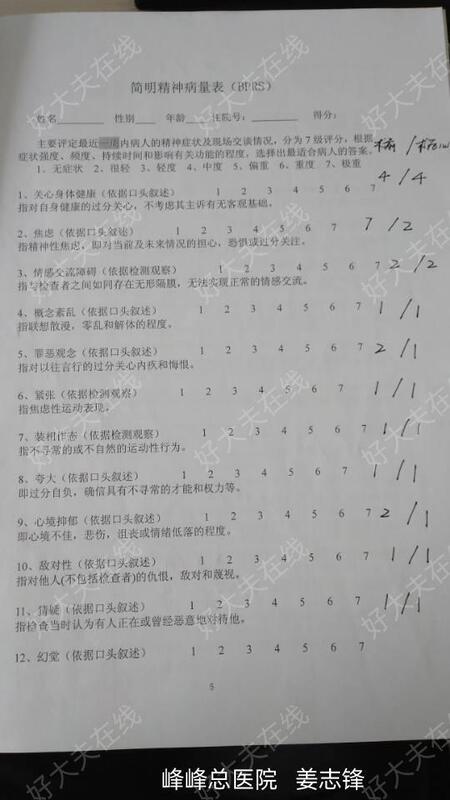 简明精神病量表（BPRS）
姓名 性别 年龄 住院号： 得分：
主要评定最近一周内病人的精神症状及现场交谈情况，分为7级评分，根据
症状强度、频度、持续时间和影响有关功能的程度，选择出最适合病人的答案。
术前/术后1w
1、无症状 2、很轻 3、轻度 4、中度 5、偏重 6、重度 7、极重
4/4
1、关心身体健康（依据口头叙述） 1 2 3 4 5 6 7
指对自身健康的过分关心，不考虑其主诉有无客观基础。
2、焦虑（依据口头叙述） 1 2 3 4 5 6 7 7/2
指精神性焦虑，即对当前及未来情况的担心，恐惧或过分关注。
3、情感交流障碍（依据检测观察） 1 2 3 4 5 6 7 2/2
指与检查者之间如同存在无形隔膜，无法实现正常的情感交流。
4、概念紊乱（依据口头叙述） 1 2 3 4 5 6 7 1/1
指联想散漫，零乱和解体的程度。
5、罪恶观念（依据口头叙述） 1 2 3 4 5 6 7 2/1
指对以往言行的过分关心内疚和悔恨。
6、紧张（依据检测观察） 1 2 3 4 5 6 7 1/1
指焦虑性运动表现。
7、装相作态（依据检测观察） 1 2 3 4 5 6 7 1/1
指不寻常的或不自然的运动性行为。
8、夸大（依据口头叙述） 1 2 3 4 5 6 7 1/1
即过分自负，确信具有不寻常的才能和权力等。
9、心境抑郁（依据口头叙述） 1 2 3 4 5 6 7 2/1
即心境不佳，悲伤，沮丧或情绪低落的程度。
10、敌对性（依据口头叙述） 1 2 3 4 5 6 7 1/1
指对他人(不包括检查者)的仇恨，敌对和蔑视。
11、猜疑（依据口头叙述） 1 2 3 4 5 6 7 1/1
指检查当时认为有人正在或曾经恶意地对待他。
12、幻觉（依据口头叙述） 1 2 3 4 5 6 7
5
好大夫在线
峰峰总医院 姜志锋